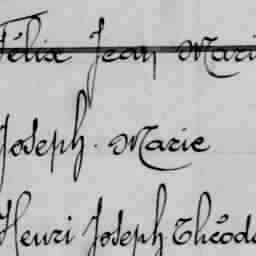 Félix Jean Mari
Joseph. Marie
Henri Joseph Théod